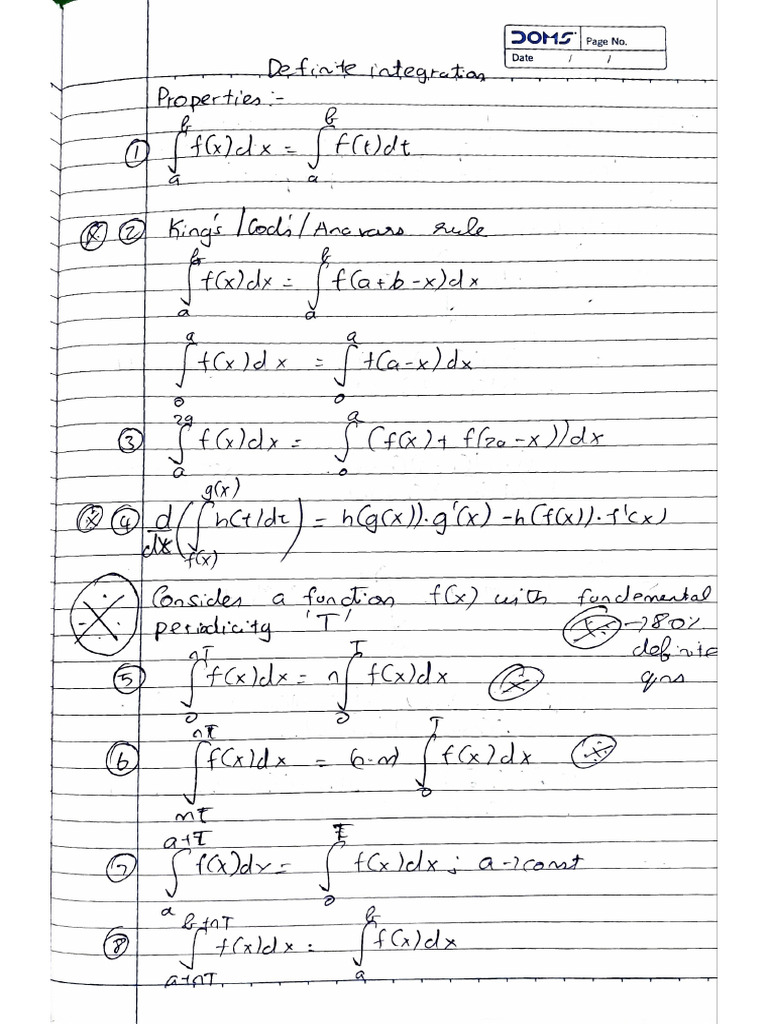 DOMS Page No.
Date / /
Definite integration
Properties:-
① ∫_a^b f(x)dx = ∫_a^b f(t)dt
② King's/God's/ rule
∫_a^b f(x)dx = ∫_a^b f(a+b-x)dx
∫_0^a f(x)dx = ∫_0^a f(a-x)dx
③ ∫_a^2a f(x)dx = ∫_0^a (f(x)+f(2a-x))dx
④ d/dx (∫_f(x)^g(x) h(t)dt) = h(g(x)).g'(x) - h(f(x)).f'(x)
Consider a function f(x) with fundemental
periodicity 'T' → 80%
definite
qns
⑤ ∫_0^nT f(x)dx = n∫_0^T f(x)dx
⑥ ∫_mT^nT f(x)dx = ∫_0^T f(x)dx
⑦ ∫_a^a+T f(x)dx = ∫_0^T f(x)dx ; a→const
⑧ ∫_a+nT^b+nT f(x)dx = ∫_a^b f(x)dx